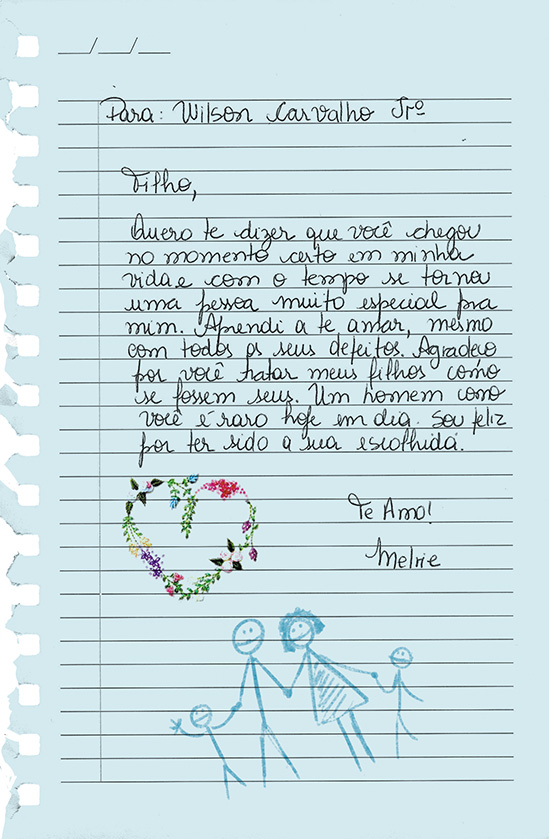 ___/___/___
Para: Wilson Carvalho Jrº
Filho,
Quero te dizer que você chegou
no momento certo em minha
vida e com o tempo se tornou
uma pessoa muito especial pra
mim. Aprendi a te amar, mesmo
com todos os seus defeitos. Agradeço
por você tratar meus filhos como
se fossem seus. Um homem como
você é raro hoje em dia. Sou feliz
por ter sido a sua escolhida.
Te Amo!